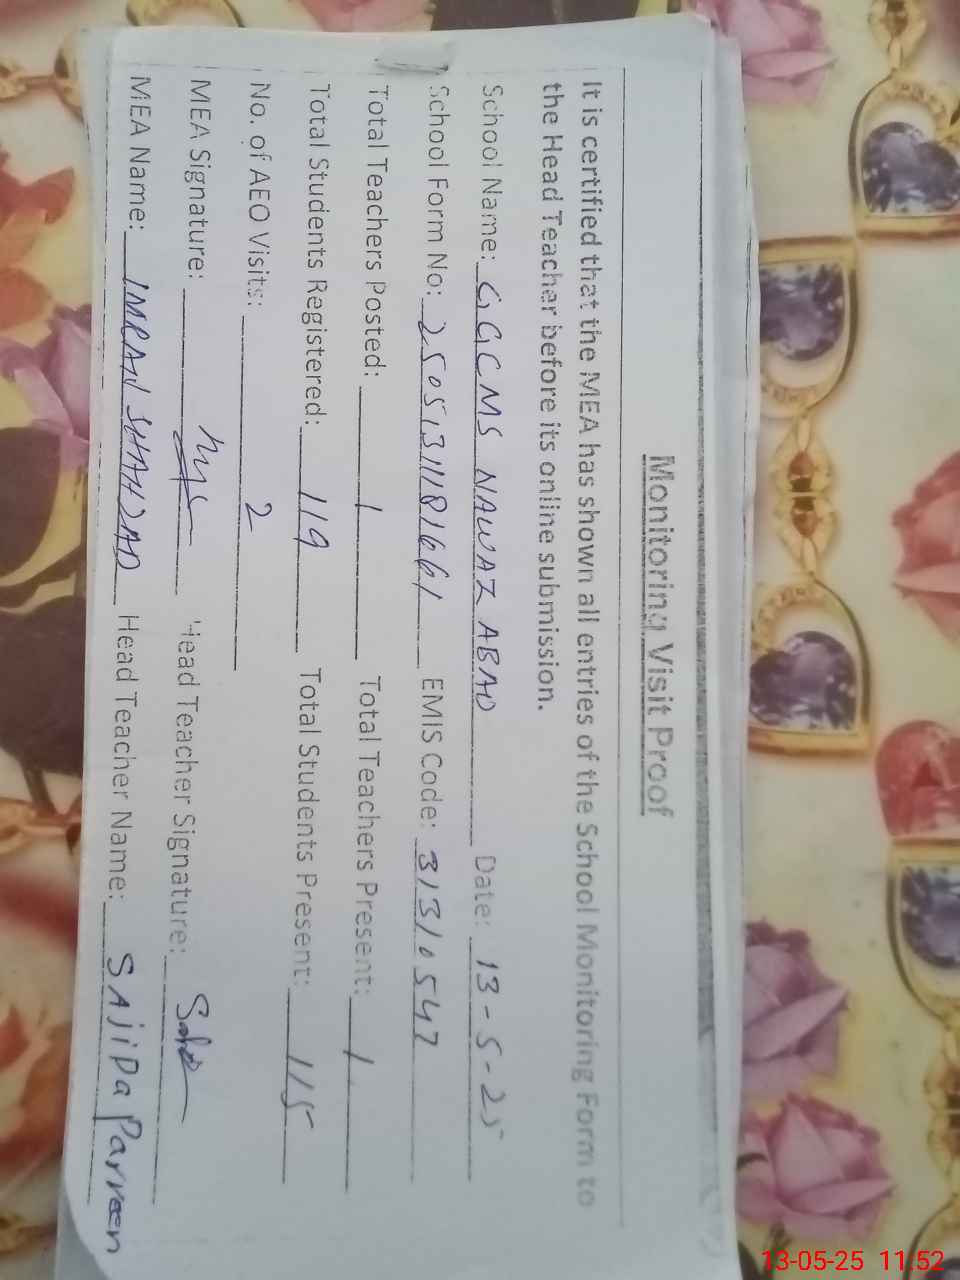 Monitoring Visit Proof
It is certified that the MEA has shown all entries of the School Monitoring Form to
the Head Teacher before its online submission.
School Name: GGCMS NAWAZ ABAD Date: 13-5-25
School Form No: 25051311181661 EMIS Code: 31310547
Total Teachers Posted: 1 Total Teachers Present: 1
Total Students Registered: 119 Total Students Present: 115
No. of AEO Visits: 2
MEA Signature: Head Teacher Signature:
MEA Name: IMRAN SHAHZAD Head Teacher Name: SAJIDA Parveen
13-05-25 11:52